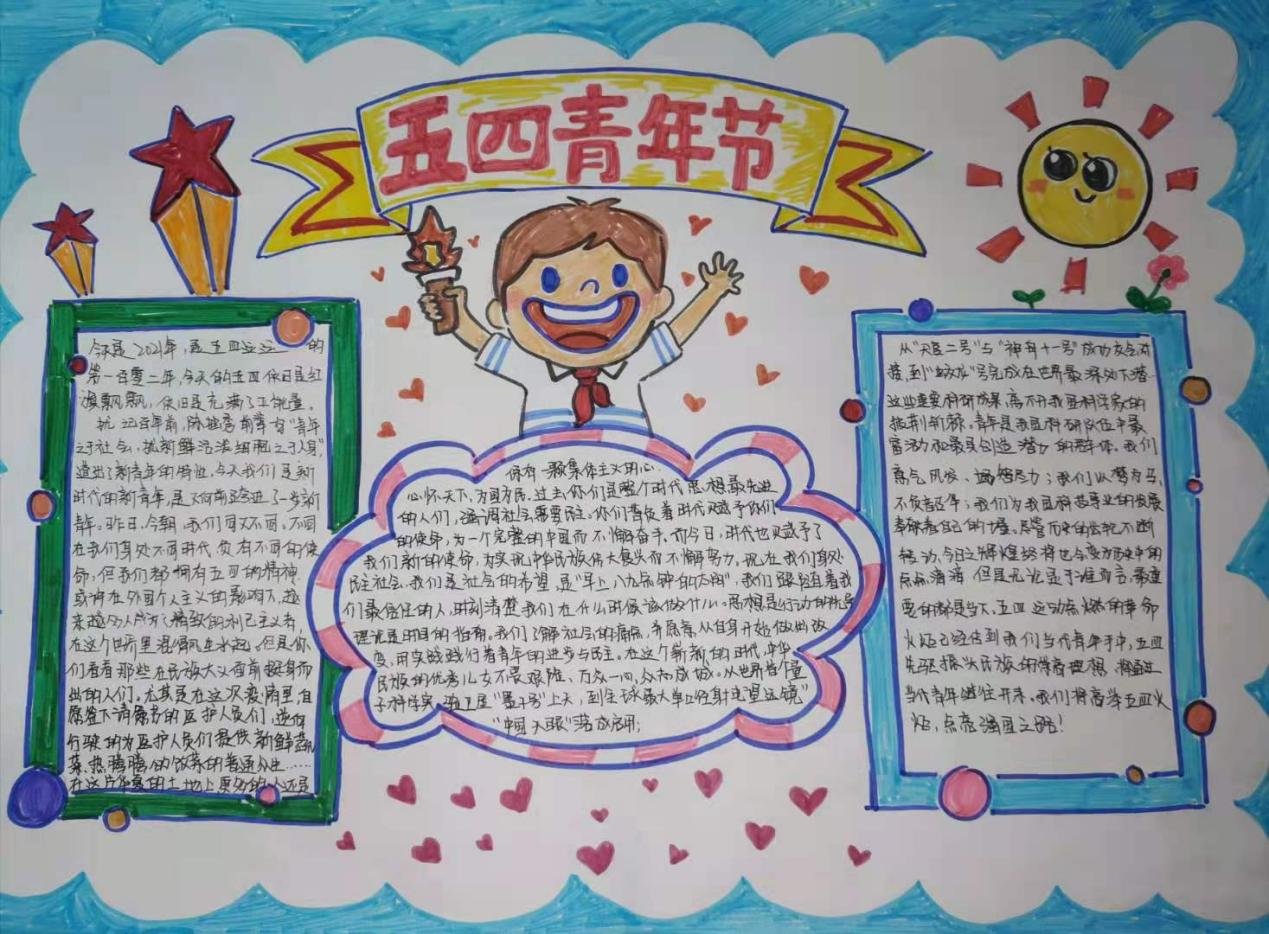 五四青年节
今天是2021年,是五四运动的
第一百零二年,今天的五四依旧是红
旗飘飘,依旧是充满了正能量。
前,陈独秀前辈有“青年
之于社会,犹新鲜活泼细胞之于人身”
道出了新青年的特性,今天我们是新
时代的新青年,是又向前迈进了一步新
青年。昨日、今朝,我们同又不同,不同
在我们身处不同时代,负有不同的使
命,但我们都拥有五四的精神。
或许在外国个人主义的影响下,越
来越多人成为了精致的利己主义者,
在这个世界里混得风生水起。但是你
们看看那些在民族大义面前挺身而
出的人们。尤其是在这次疫情里,自
愿签下请愿书的医护人员们,逆向
行驶的为医护人员们提供新鲜蔬
菜、热腾腾的饭菜的普通公民……
在这片华夏的土地上更多的人还是
你有一颗集体主义的心。
心怀天下,为国为民。过去你们是整个时代思想最先进
的人们,强调社会需要民主。你们背负着时代赋予你们
的使命,为一个完整的中国而不懈奋斗。而今日,时代也赋予了
我们新的使命,为实现中华民族伟大复兴而不懈努力。现在我们身处
民主社会,我们是社会的希望,是“早上八九点钟的太阳”,我们跟随着我
们最信任的人,时刻清楚我们在什么时候该做什么。思想是行动的先导
理论是时间的指南。我们了解社会的痛点,并愿意从自身开始做出改
变,用实践践行着青年的进步与民主。在这个崭新的时代,中华
民族的优秀儿女不畏艰险、万众一心,众志成城。从世界首个量
子科学实验卫星“墨子号”上天,到全球最大单口径射电望远镜
“中国天眼”落成启用;
从“天宫二号”与“神舟十一号”成功交会对
接,到“蛟龙”号完成在世界最深处下潜…
这些重要科研成果,离不开我国科学家的
披荆斩棘,青年是我国科研队伍中最
富活力和最具创造潜力的群体。我们
意气风发、竭尽力;我们以梦为马,
不负韶华;我们为我国科技事业的发展
奉献着自己的力量。尽管历史的齿轮不断
转动,今日之辉煌终将也会变为历史中的
点点滴滴,但是无论是于谁而言,最重
要的都是当下。五四运动点燃的革命
火炬已经传到我们当代青年手中,五四
先驱振兴民族的伟大理想,
当代青年继往开来。我们将高举五四火
炬,点亮强国之路!